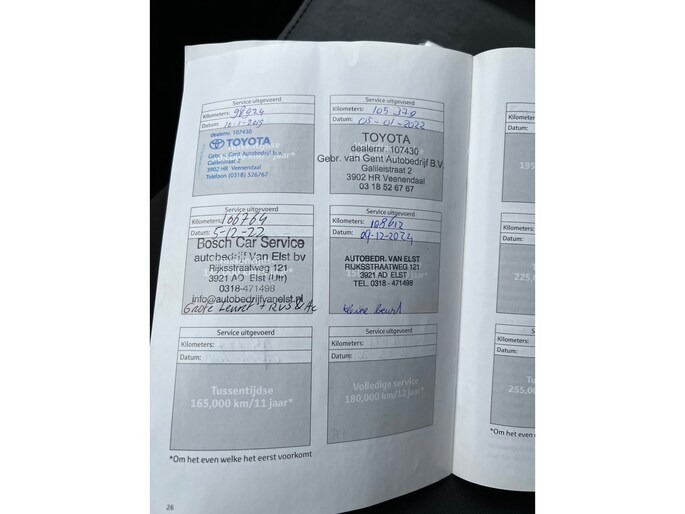 Service uitgevoerd
Kilometers: 98924
Datum:
dealernr. 107430
TOYOTA
Gebr. v. Gent Autobedrijf b.v.
Galileistraat 2
3902 HR Veenendaal
Telefoon (0318) 526767
Service uitgevoerd
Kilometers: 105 370
Datum: 05-01-2022
TOYOTA
dealernr. 107430
Gebr. van Gent Autobedrijf B.V.
Galileistraat 2
3902 HR Veenendaal
03 18 52 67 67
Service uitgevoerd
Kilometers: 106764
Datum: 5-12-22
Bosch Car Service
autobedrijf Van Elst bv
Rijksstraatweg 121
3921 AD Elst (Utr)
0318-471498
info@autobedrijfvanelst.nl
Grote beurt + RVS & Ac
Service uitgevoerd
Kilometers: 108612
Datum: 09-12-2024
AUTOBEDR. VAN ELST
RIJKSSTRAATWEG 121
3921 AD ELST
TEL. 0318 - 471498
kleine beurt
Service uitgevoerd
Kilometers:
Datum:
Tussentijdse
165,000 km/11 jaar*
Service uitgevoerd
Kilometers:
Datum:
Volledige service
180,000 km/12 jaar*
*Om het even welke het eerst voorkomt
26
195
225,
255,0
*Om het even